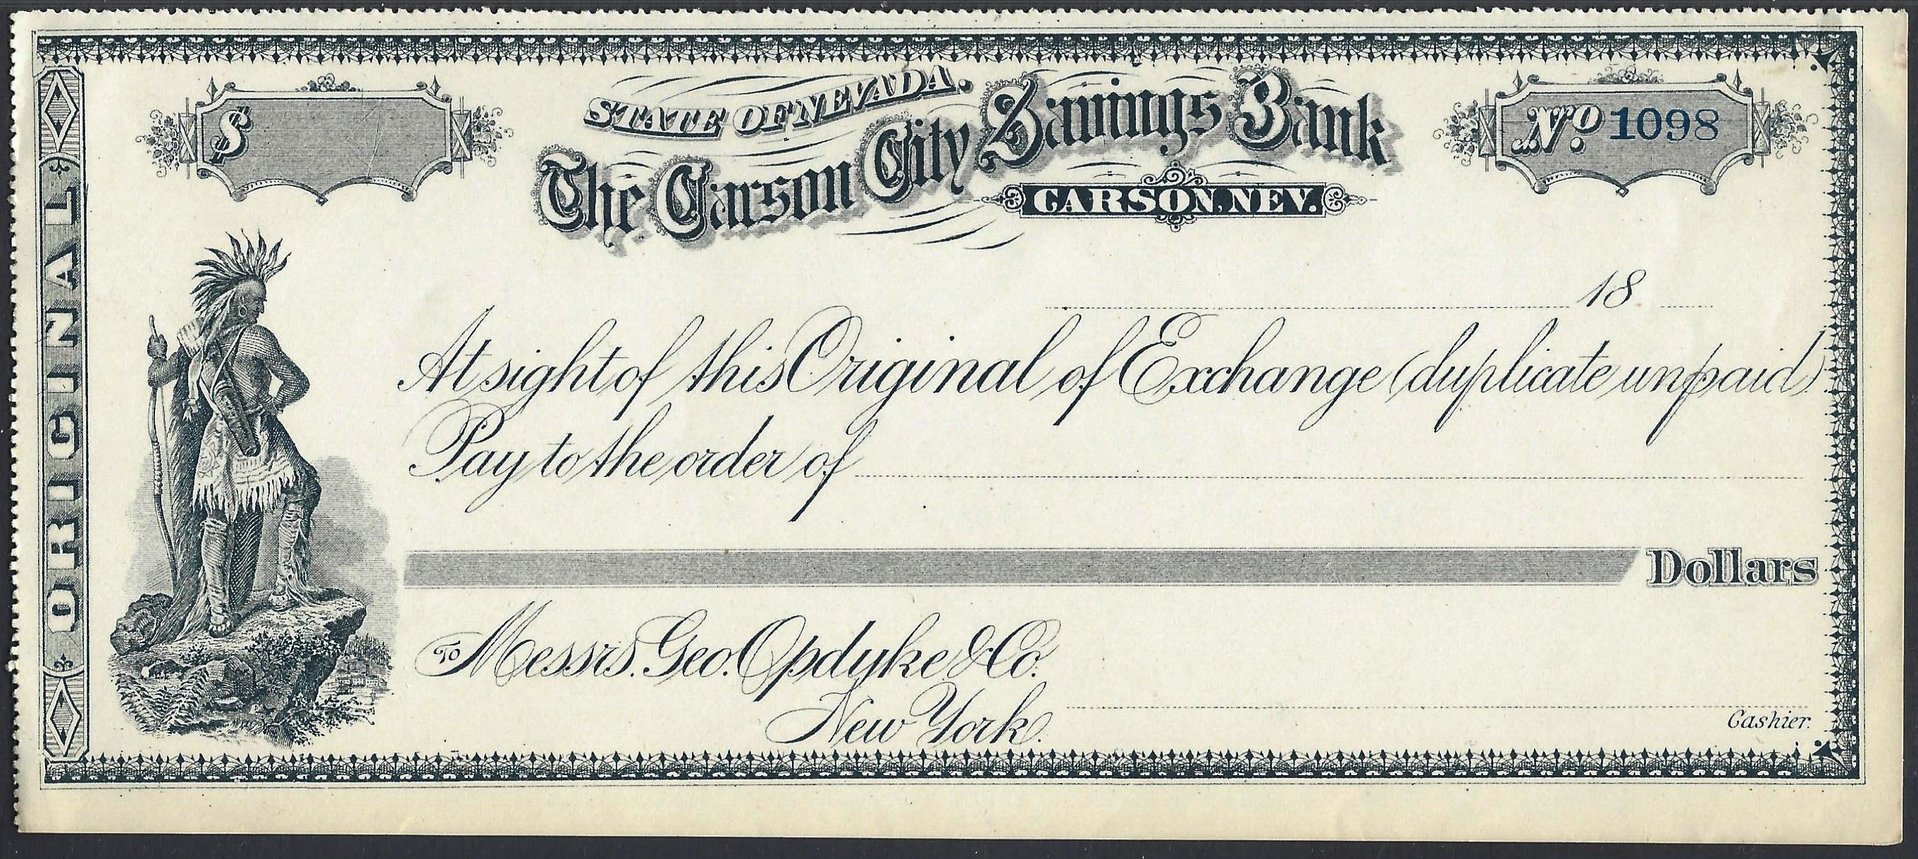 ORIGINAL
$
STATE OF NEVADA.
The Carson City Savings Bank
CARSON, NEV.
No. 1098
18
At sight of this Original of Exchange (duplicate unpaid)
Pay to the order of
Dollars
To Messrs. Geo. Opdyke & Co.
New York.
Cashier.